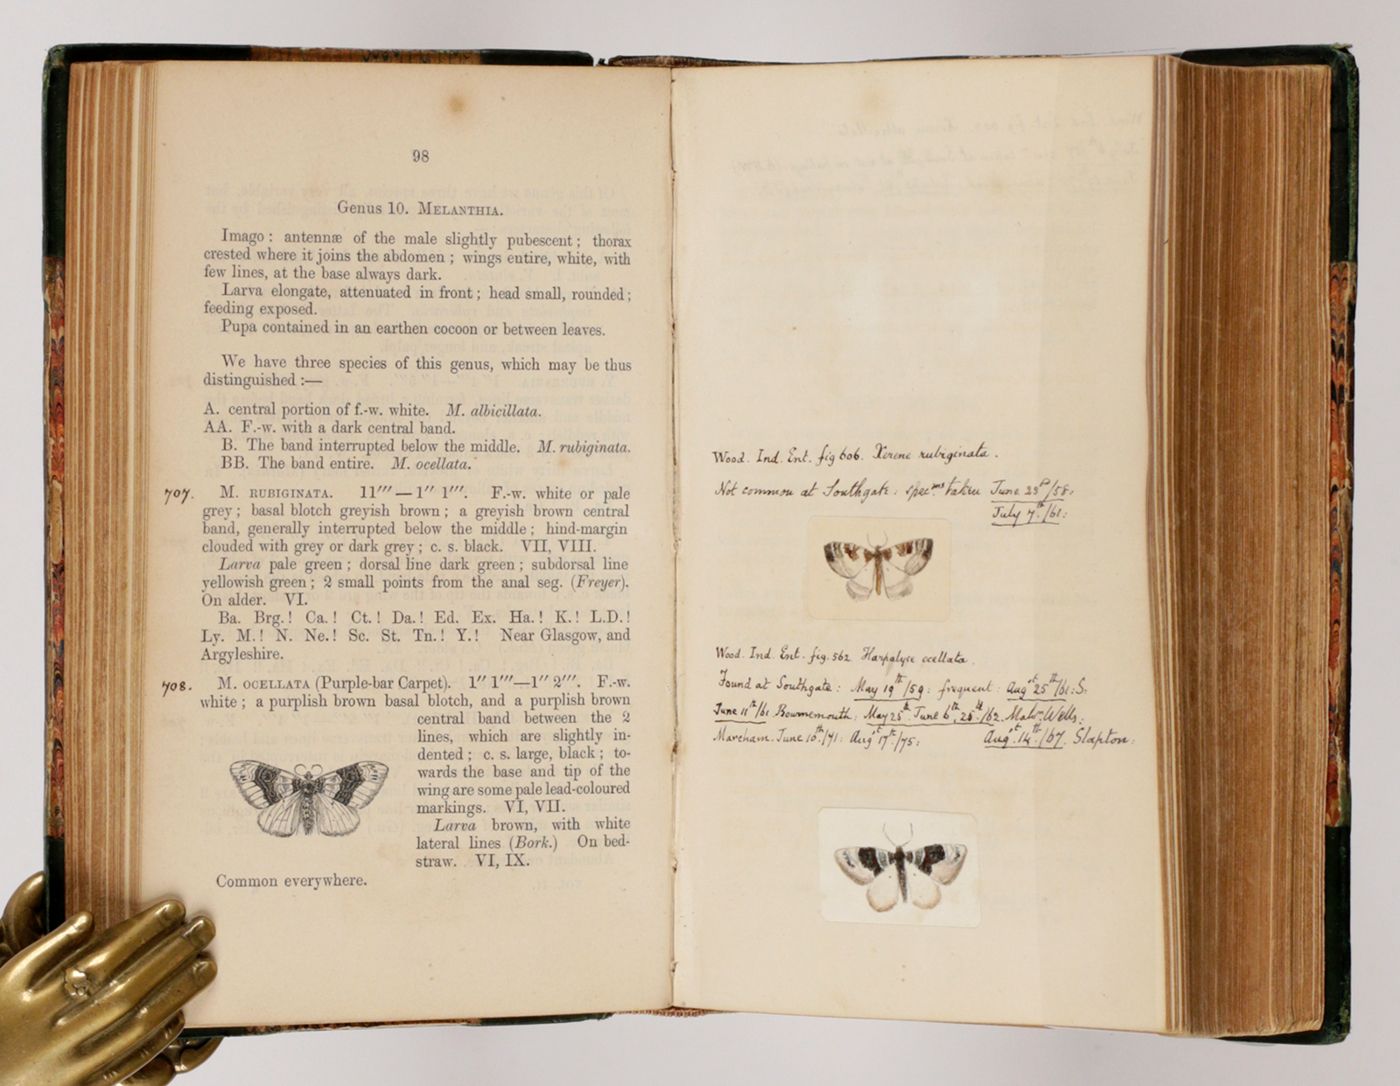 98
Genus 10. MELANTHIA.
Imago : antennæ of the male slightly pubescent ; thorax
crested where it joins the abdomen ; wings entire, white, with
few lines, at the base always dark.
Larva elongate, attenuated in front ; head small, rounded ;
feeding exposed.
Pupa contained in an earthen cocoon or between leaves.
We have three species of this genus, which may be thus
distinguished :—
A. central portion of f.-w. white. M. albicillata.
AA. F.-w. with a dark central band.
B. The band interrupted below the middle. M. rubiginata.
BB. The band entire. M. ocellata.
707. M. RUBIGINATA. 11‴ — 1″ 1‴. F.-w. white or pale
grey ; basal blotch greyish brown ; a greyish brown central
band, generally interrupted below the middle ; hind-margin
clouded with grey or dark grey ; c. s. black. VII, VIII.
Larva pale green ; dorsal line dark green ; subdorsal line
yellowish green ; 2 small points from the anal seg. (Freyer).
On alder. VI.
Ba. Brg. ! Ca. ! Ct. ! Da. ! Ed. Ex. Ha. ! K. ! L.D. !
Ly. M. ! N. Ne. ! Sc. St. Tn. ! Y. ! Near Glasgow, and
Argyleshire.
708. M. OCELLATA (Purple-bar Carpet). 1″ 1‴—1″ 2‴. F.-w.
white ; a purplish brown basal blotch, and a purplish brown
central band between the 2
lines, which are slightly in-
dented ; c. s. large, black ; to-
wards the base and tip of the
wing are some pale lead-coloured
markings. VI, VII.
Larva brown, with white
lateral lines (Bork.) On bed-
straw. VI, IX.
Common everywhere.
Wood. Ind. Ent. fig 606. Xerene rubiginata.
Not common at Southgate : specms taken June 23d/58 :
July 7th/61 :
Wood. Ind. Ent. fig. 562 Harpalyce ocellata.
Found at Southgate : May 19th/59 : frequent : Augst 25th/61 : S :
June 11th/61 Bournemouth : May 25th June 6th, 26th/62. Malv-Wells ;
Marcham. June 10th/71 : Augst 17th/75 : Augst 14th/67. Slapton :